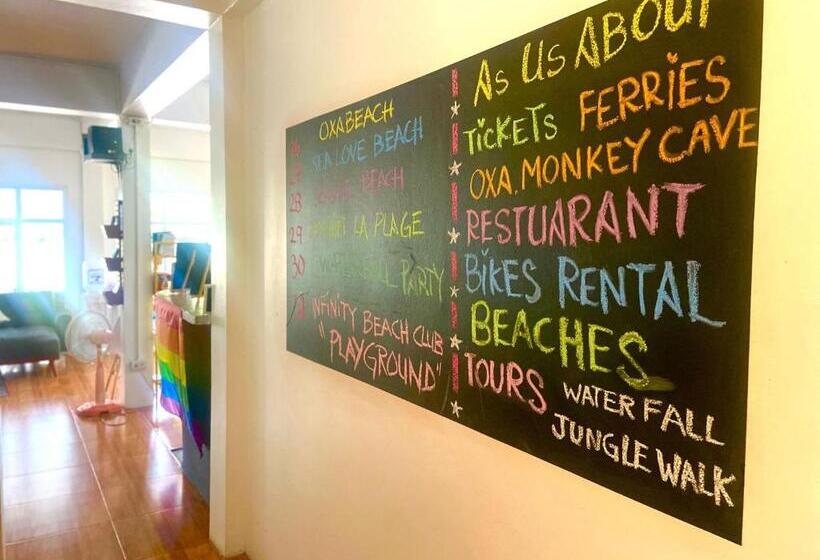 OXA BEACH
SEA LOVE BEACH
28 BEACH
29 LA PLAGE
30 PARTY
INFINITY BEACH CLUB
"PLAYGROUND"
AS US ABOUT
TICKETS FERRIES
OXA. MONKEY CAVE
RESTUARANT
BIKES RENTAL
BEACHES
TOURS WATER FALL
JUNGLE WALK